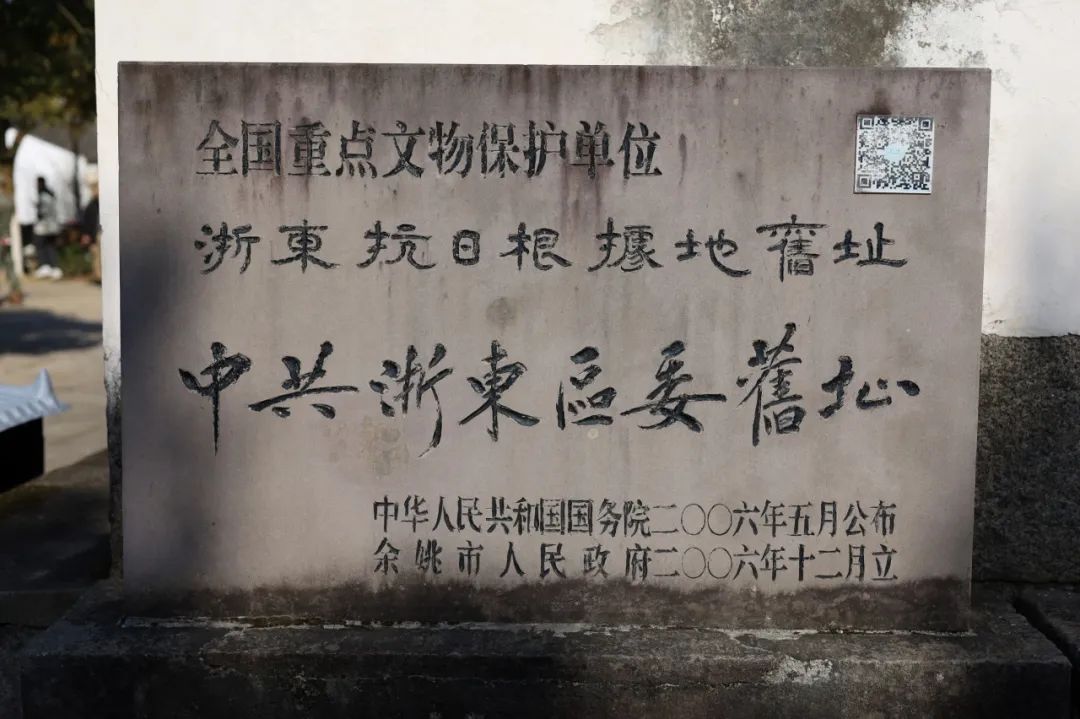 全国重点文物保护单位
浙東抗日根據地舊址
中共浙東區委舊址
中华人民共和国国务院二〇〇六年五月公布
余姚市人民政府二〇〇六年十二月立